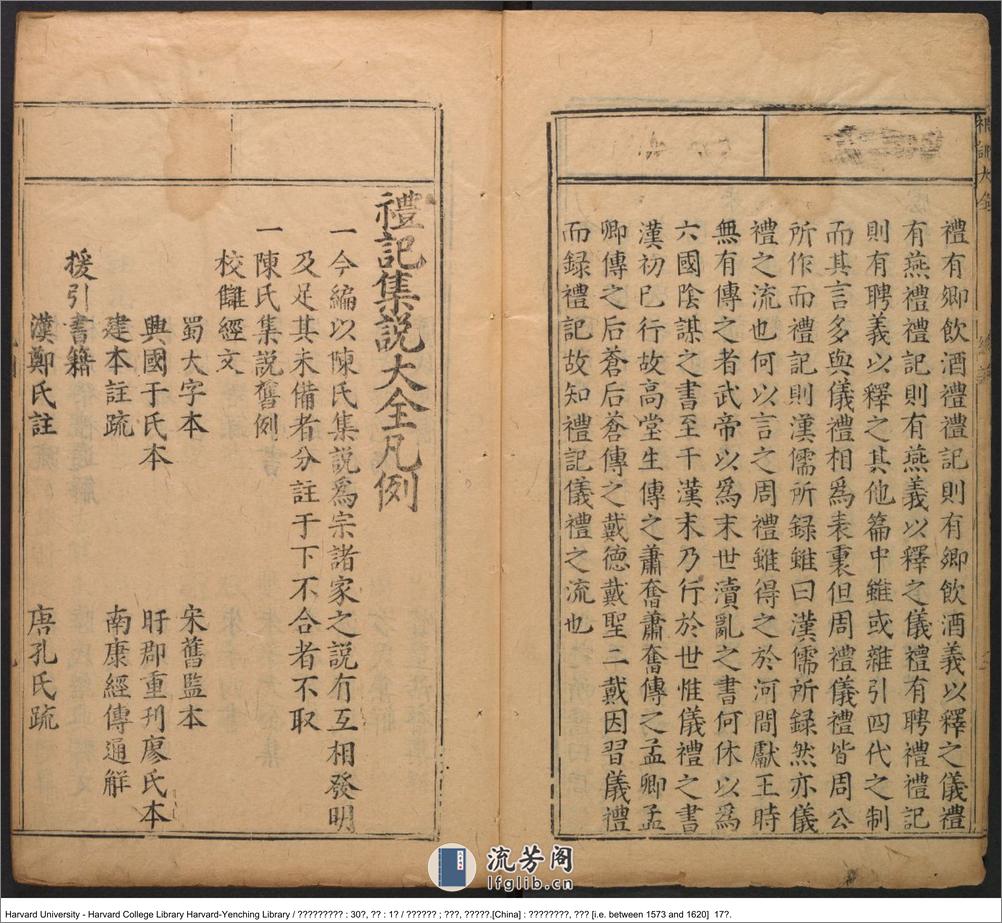 禮有鄉飲酒禮禮記則有鄉飲酒義以釋之儀禮
有燕禮禮記則有燕義以釋之儀禮有聘禮禮記
則有聘義以釋之其他篇中雖或雜引四代之制
而其言多與儀禮相為表裏但周禮儀禮皆周公
所作而禮記則漢儒所録雖曰漢儒所録然亦儀
禮之流也何以言之周禮雖得之於河間獻王時
無有傳之者武帝以為末世瀆亂之書何休以為
六國陰謀之書至于漢末乃行於世惟儀禮之書
漢初已行故高堂生傳之蕭奮蕭奮傳之孟卿孟
卿傳之后蒼后蒼傳之戴德戴聖二戴因習儀禮
而録禮記故知禮記儀禮之流也
禮記集説大全凡例
一今編以陳氏集説為宗諸家之説有互相發明
及足其未備者分註于下不合者不取
一陳氏集説舊例
校讎經文
蜀大字本 宋舊監本
興國于氏本 盱郡重刊廖氏本
建本註疏 南康經傳通解
援引書籍
漢鄭氏註 唐孔氏疏
流芳阁
lfglib.cn
Harvard University - Harvard College Library Harvard-Yenching Library / ????????? : 30?, ?? : 1? / ?????? ; ???, ?????.[China] : ????????, ??? [i.e. between 1573 and 1620] 17?.